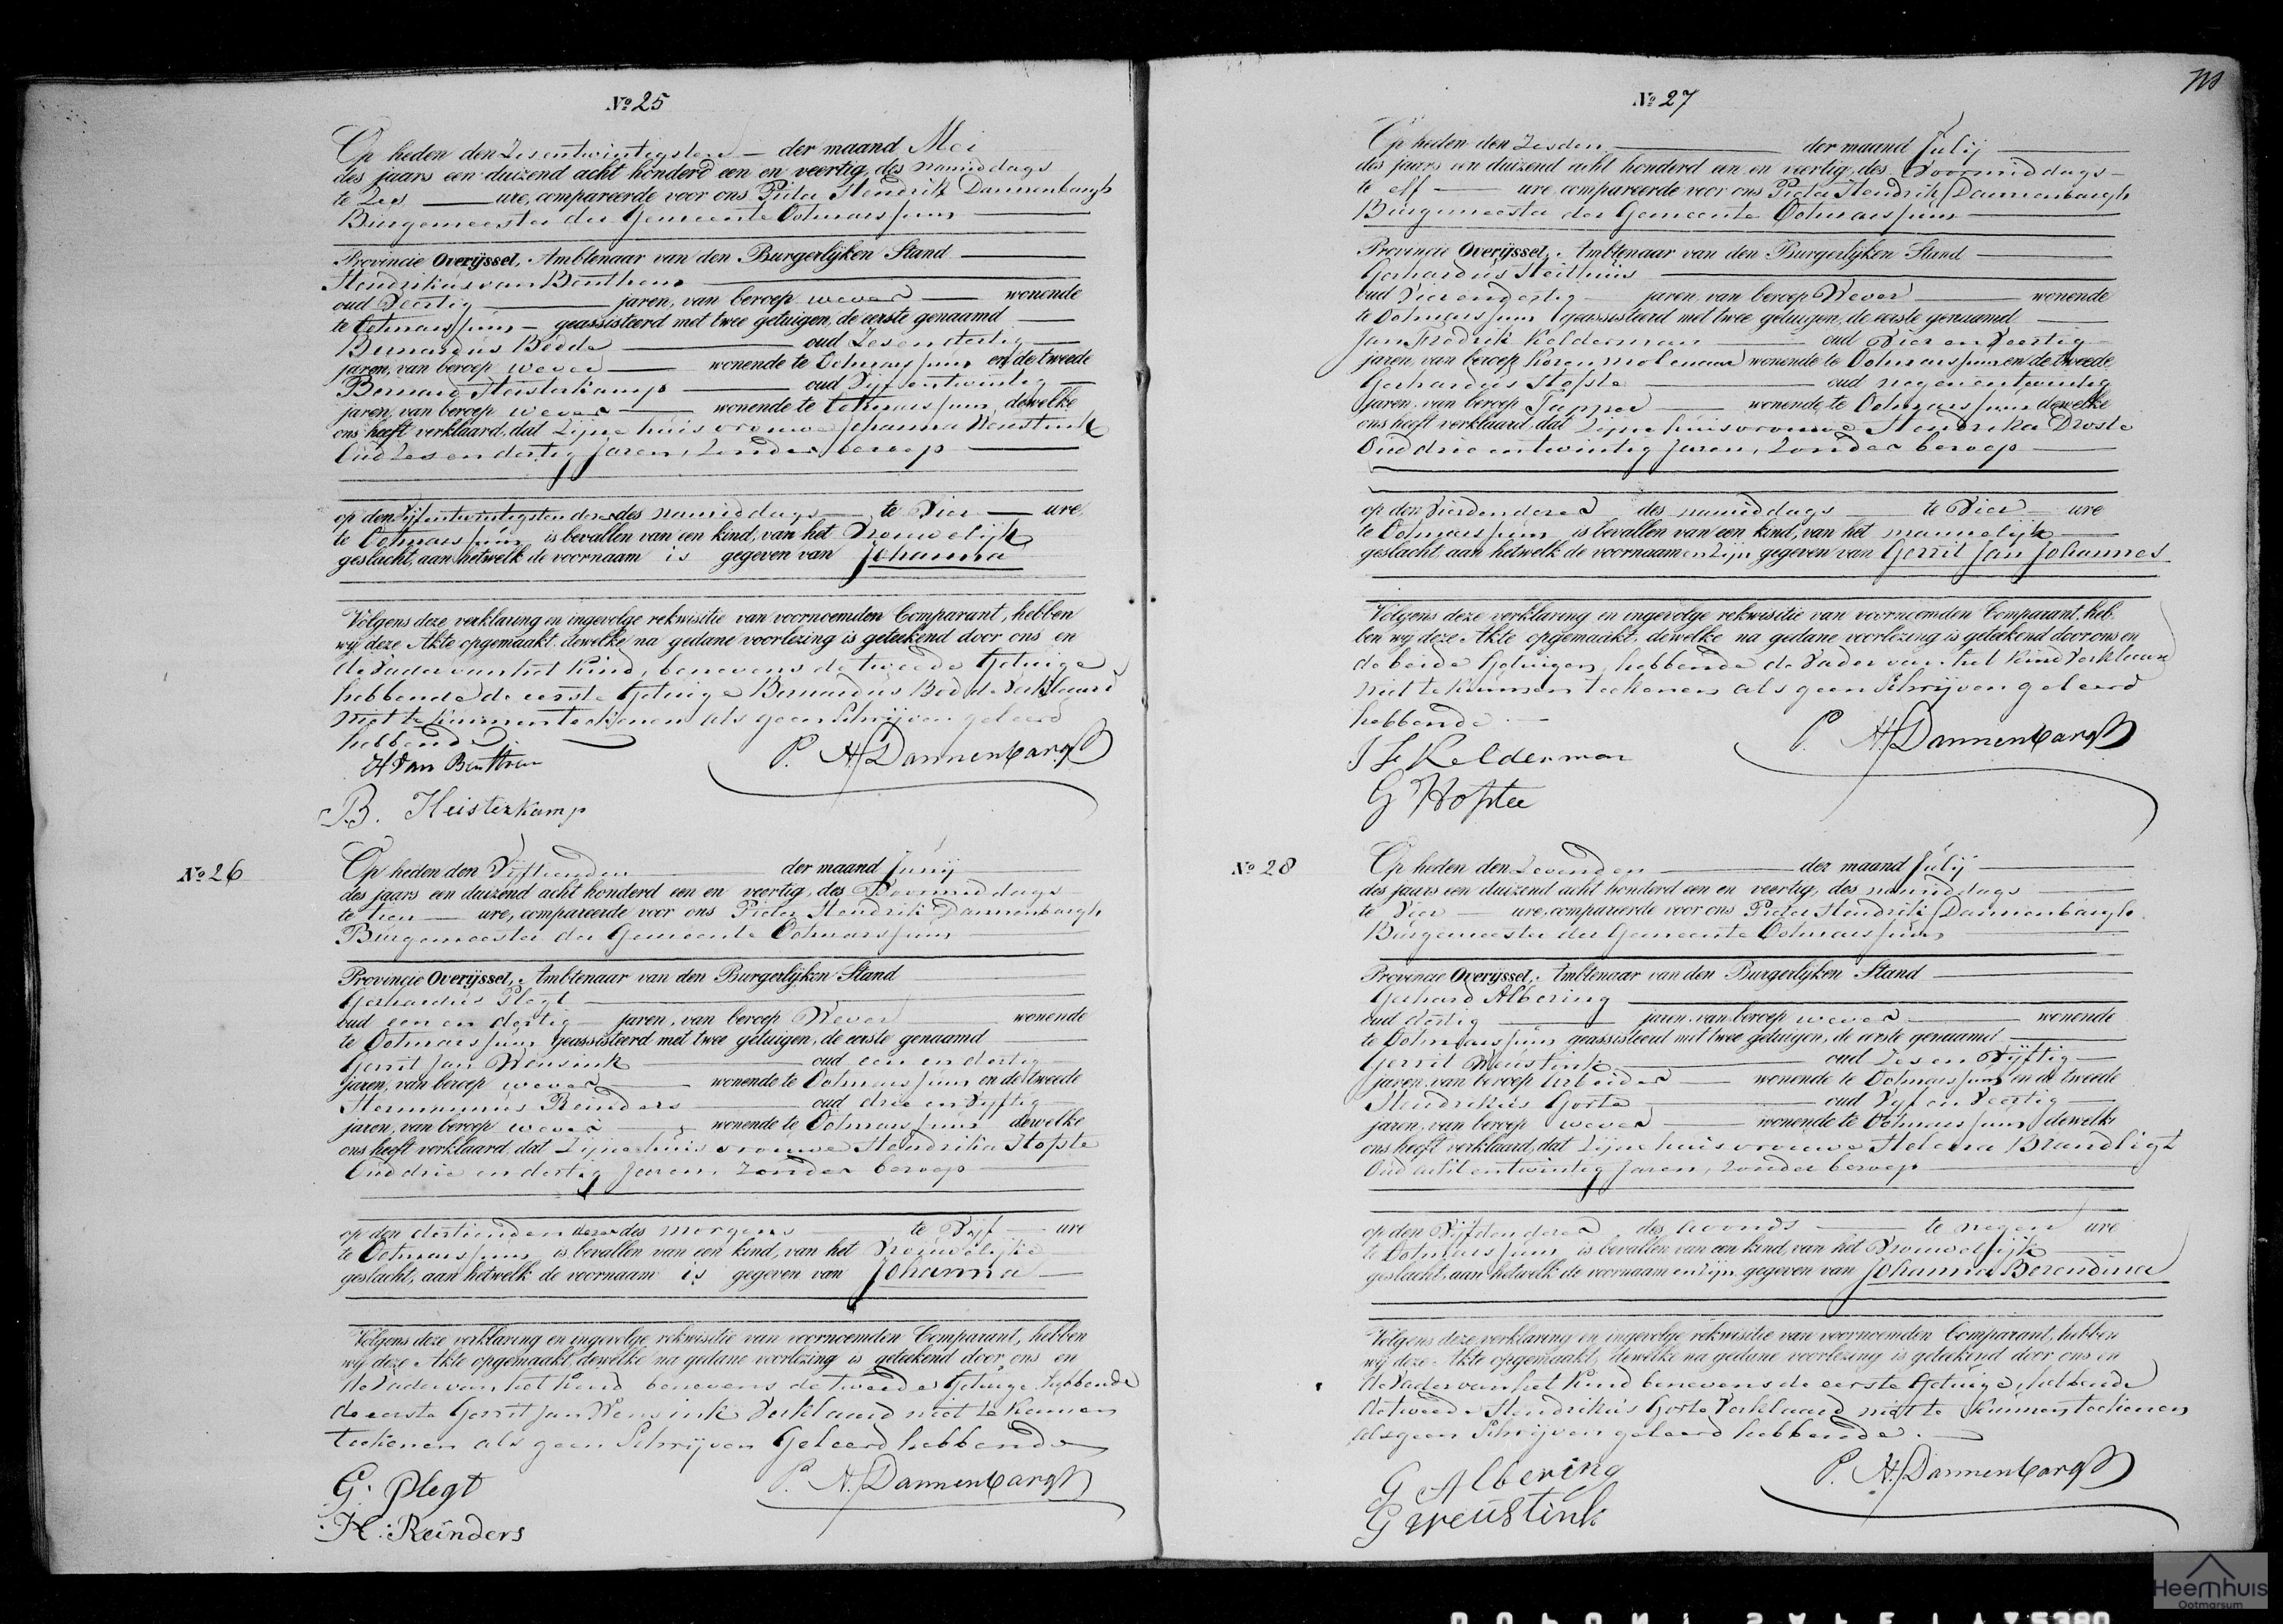 Nº 25
Op heden den Zesentwintigsten der maand Mei
des jaars een duizend acht honderd een en veertig, des namiddags
te Zes ure, compareerde voor ons Pieter Hendrik Dannenbargh
Burgemeester der Gemeente Ootmarssum
Provincie Overijssel, Ambtenaar van den Burgerlijken Stand
Hendrikus van Benthem
oud Veertig jaren, van beroep wever wonende
te Ootmarssum geassisteerd met twee getuigen, de eerste genaamd
Bernardus Bödde oud Zesendertig
jaren, van beroep wever wonende te Ootmarssum en de tweede
Bernard Heisterkamp oud Vijfentwintig
jaren, van beroep wever wonende te Ootmarssum dewelke
ons heeft verklaard, dat Zijne huisvrouwe Johanna Weustink
Oud Zes en dertig Jaren, Zonder beroep
op den Vijfentwintigsten dezer des namiddags te Vier ure
te Ootmarssum is bevallen van een kind, van het Vrouwelijk
geslacht, aan hetwelk de voornaam is gegeven van Johanna
Volgens deze verklaring en ingevolge rekwisitie van voornoemden Comparant, hebben
wij deze Akte opgemaakt, dewelke na gedane voorlezing is geteekend door ons en
de Vader van het Kind, benevens de tweede Getuige
hebbende de eerste Getuige Bernardus Bödde Verklaard
niet te kunnen teekenen als geen Schrijven geleerd
hebbende.
H Van Benthem P. H. Dannenbargh
B. Heisterkamp
Nº 26
Op heden den Vijftienden der maand Junij
des jaars een duizend acht honderd een en veertig, des Voormiddags
te tien ure, compareerde voor ons Pieter Hendrik Dannenbargh
Burgemeester der Gemeente Ootmarssum
Provincie Overijssel, Ambtenaar van den Burgerlijken Stand
Gerhardus Plegt
oud een en dertig jaren, van beroep Wever wonende
te Ootmarssum geassisteerd met twee getuigen, de eerste genaamd
Gerrit Jan Wensink oud een en dertig
jaren, van beroep wever wonende te Ootmarssum en de tweede
Hermannus Reinders oud drie en Vijftig
jaren, van beroep wever wonende te Ootmarssum dewelke
ons heeft verklaard, dat Zijne huisvrouwe Hendrika Hofste
Oud drie en dertig Jaren, Zonder beroep
op den dertienden dezer des morgens te Vijf ure
te Ootmarssum is bevallen van een kind, van het Vrouwelijke
geslacht, aan hetwelk de voornaam is gegeven van Johanna
Volgens deze verklaring en ingevolge rekwisitie van voornoemden Comparant, hebben
wij deze Akte opgemaakt, dewelke na gedane voorlezing is geteekend door ons en
de Vader van het Kind benevens de tweede Getuige, hebbende
de eerste Gerrit Jan Wensink Verklaard niet te kunnen
teekenen als geen Schrijven Geleerd hebbende
G. Plegt P. H. Dannenbargh
H. Reinders
Nº 27
Op heden den Zesden der maand Julij
des jaars een duizend acht honderd een en veertig, des Voormiddags
te elf ure, compareerde voor ons Pieter Hendrik Dannenbargh
Burgemeester der Gemeente Ootmarssum
Provincie Overijssel, Ambtenaar van den Burgerlijken Stand
Gerhardus Heithuis
oud Vierendertig jaren, van beroep Wever wonende
te Ootmarssum geassisteerd met twee getuigen, de eerste genaamd
Jan Fredrik Kelderman oud Vier en Veertig
jaren, van beroep Korenmolenaar wonende te Ootmarssum en de tweede
Gerhardus Hofste oud negenentwintig
jaren, van beroep Tapper wonende te Ootmarssum dewelke
ons heeft verklaard, dat Zijne huisvrouwe Hendrika Droste
Oud drie entwintig Jaren, Zonder beroep
op den Vierden dezer des namiddags te Vier ure
te Ootmarssum is bevallen van een kind, van het mannelijk
geslacht, aan hetwelk de voornaamen zijn gegeven van Gerrit Jan Johannes
Volgens deze verklaring en ingevolge rekwisitie van voornoemden Comparant, heb-
ben wij deze Akte opgemaakt, dewelke na gedane voorlezing is geteekend door ons en
de beide Getuigen, hebbende de Vader van het Kind Verklaard
niet te kunnen teekenen als geen Schrijven geleerd
hebbende.
J F Kelderman P. H. Dannenbargh
G Hofste
Nº 28
Op heden den Zevenden der maand Julij
des jaars een duizend acht honderd een en veertig, des namiddags
te Vier ure, compareerde voor ons Pieter Hendrik Dannenbargh
Burgemeester der Gemeente Ootmarssum
Provincie Overijssel, Ambtenaar van den Burgerlijken Stand
Gerhard Albering
oud dertig jaren, van beroep wever wonende
te Ootmarssum geassisteerd met twee getuigen, de eerste genaamd
Gerrit Weustink oud Zes en Vijftig
jaren, van beroep Arbeider wonende te Ootmarssum en de tweede
Hendrikus Gorte oud Vijf en Veertig
jaren, van beroep wever wonende te Ootmarssum dewelke
ons heeft verklaard, dat Zijne huisvrouwe Helena Brandligt
Oud achtentwintig Jaren, Zonder beroep
op den Vijfden dezer des avonds te negen ure
te Ootmarssum is bevallen van een kind, van het Vrouwelijk
geslacht, aan hetwelk de voornaamen zijn gegeven van Johanna Berendina
Volgens deze verklaring en ingevolge rekwisitie van voornoemden Comparant, hebben
wij deze Akte opgemaakt, dewelke na gedane voorlezing is geteekend door ons en
de Vader van het Kind benevens de eerste Getuige, hebbende
de tweede Hendrikus Gorte Verklaard niet te kunnen teekenen
als geen Schrijven geleerd hebbende.
G Albering P. H. Dannenbargh
G Weustink
Heemhuis
Ootmarsum